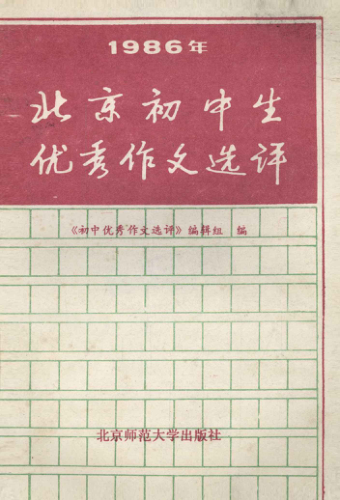 1986年
北京初中生
优秀作文选评
《初中优秀作文选评》编辑组 编
北京师范大学出版社